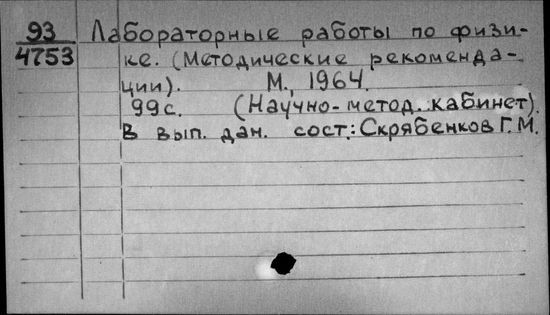 93 Лабораторные работы по физи-
4753 ке. (Методические рекоменда-
ции). М., 1964.
99с. (Научно-метод. кабинет).
В вып. дан. сост.: Скрябенков Г.М.